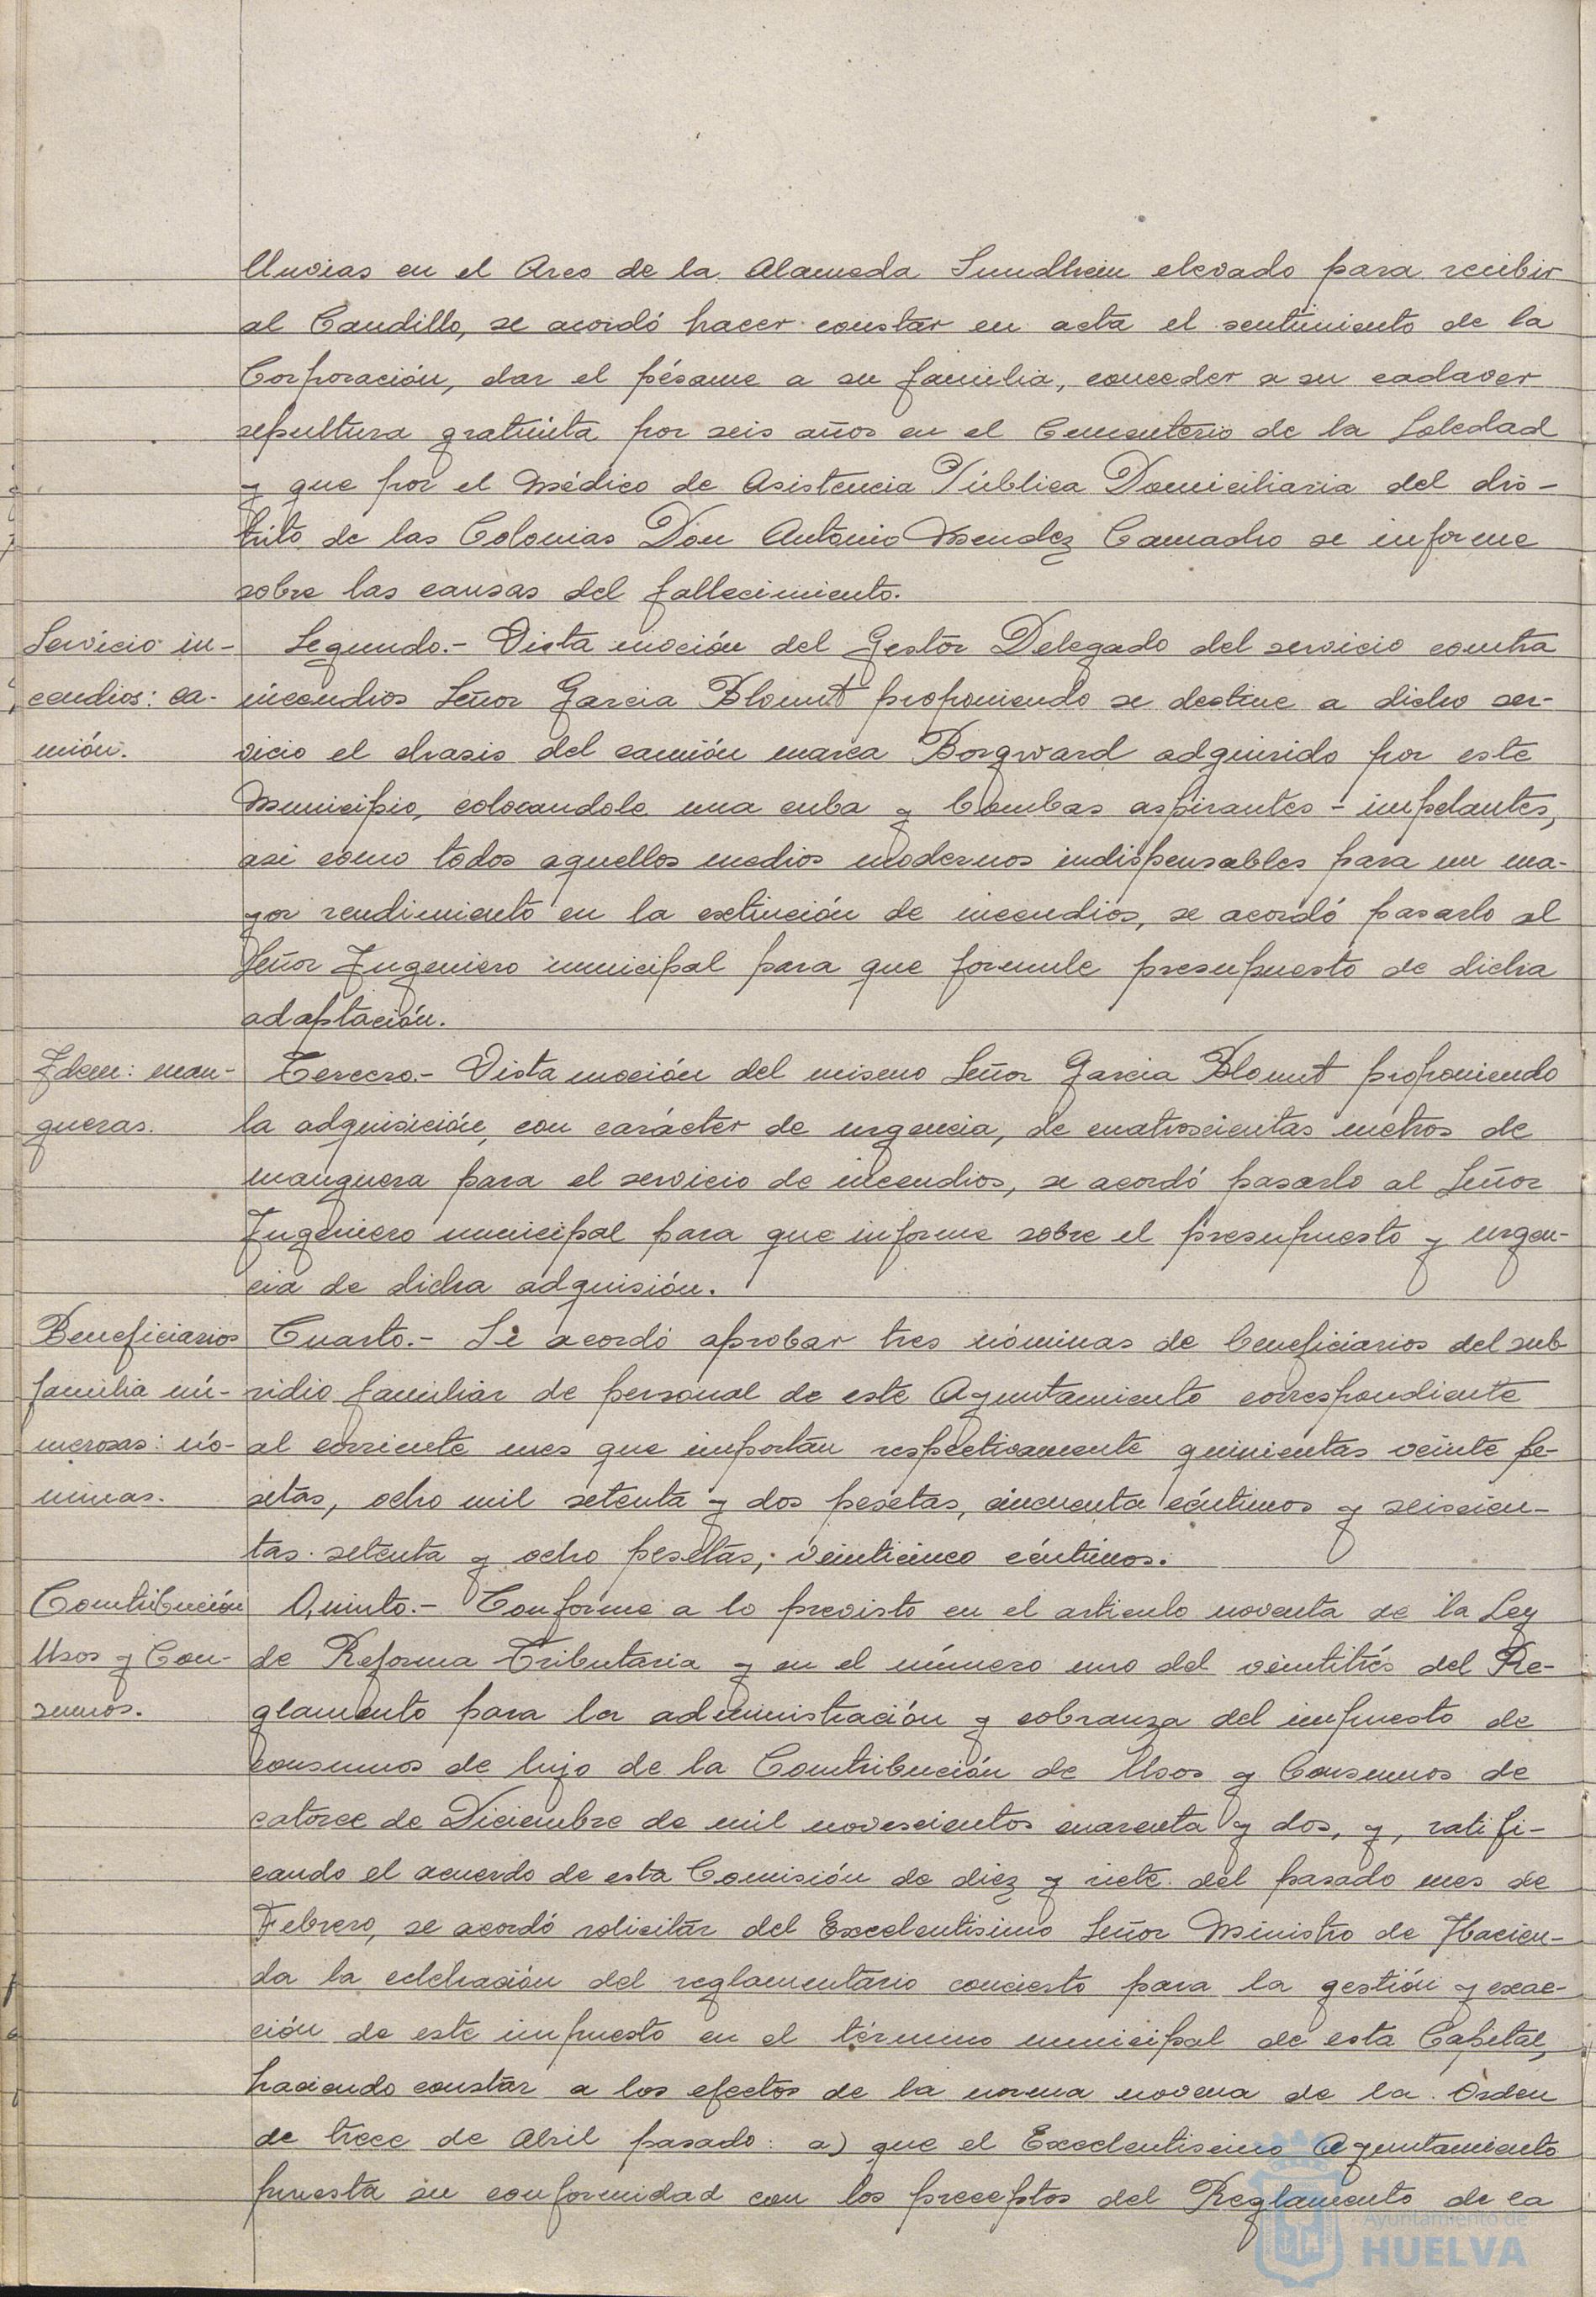 lluvias en el Arco de la Alameda Sundhein elevado para recibir
al Caudillo, se acordó hacer constar en acta el sentimiento de la
Corporación, dar el pésame a su familia, conceder a su cadaver
sepultura gratúita por seis años en el Cementerio de la Soledad
y que por el Médico de Asistencia Pública Domiciliaria del dis-
trito de las Colonias Don Antonio Mendez Camacho se informe
sobre las causas del fallecimiento.
Servicio in-
cendios: ca-
mión.
Segundo.- Vista moción del Gestor Delegado del servicio contra
incendios Señor Garcia Blomut proponiendo se destine a dicho ser-
vicio el chasis del camión marca Borgward adquirido por este
Municipio, colocandole una cuba y bombas aspirantes - impelantes,
asi como todos aquellos medios modernos indispensables para un ma-
yor rendimiento en la extinción de incendios, se acordó pasarlo al
Señor Ingeniero municipal para que formule presupuesto de dicha
adaptación.
Idem: man-
gueras.
Tercero.- Vista moción del mismo Señor Garcia Blomut proponiendo
la adquisición, con carácter de urgencia, de cuatroscientas metros de
manguera para el servicio de incendios, se acordó pasarlo al Señor
Ingeniero municipal para que informe sobre el presupuesto y urgen-
cia de dicha adquisión.
Beneficiarios
familia nu-
merosas: nó-
minas.
Cuarto.- Se acordó aprobar tres nóminas de beneficiarios del sub-
sidio familiar de personal de este Ayuntamiento correspondiente
al corriente mes que importan respectivamente quinientas veinte pe-
setas, ocho mil setenta y dos pesetas, cincuenta céntimos y seiscien-
tas setenta y ocho pesetas, veinticinco céntimos.
Contribución
Usos y Con-
sumos.
Quinto.- Conforme a lo previsto en el articulo noventa de la Ley
de Reforma Tributaria y en el número uno del veintitrés del Re-
glamento para la administración y cobranza del impuesto de
consumos de lujo de la Contribución de Usos y Consumos de
catorce de Diciembre de mil novescientos cuarenta y dos, y, ratifi-
cando el acuerdo de esta Comisión de diez y siete del pasado mes de
Febrero, se acordó solicitar del Excelentisimo Señor Ministro de Hacien-
da la celebración del reglamentario concierto para la gestión y exac-
ción de este impuesto en el término municipal de esta Capital,
haciendo constar a los efectos de la norma novena de la Orden
de trece de Abril pasado: a) que el Excelentisimo Ayuntamiento
presta su conformidad con los preceptos del Reglamento de la
Ayuntamiento de
HUELVA